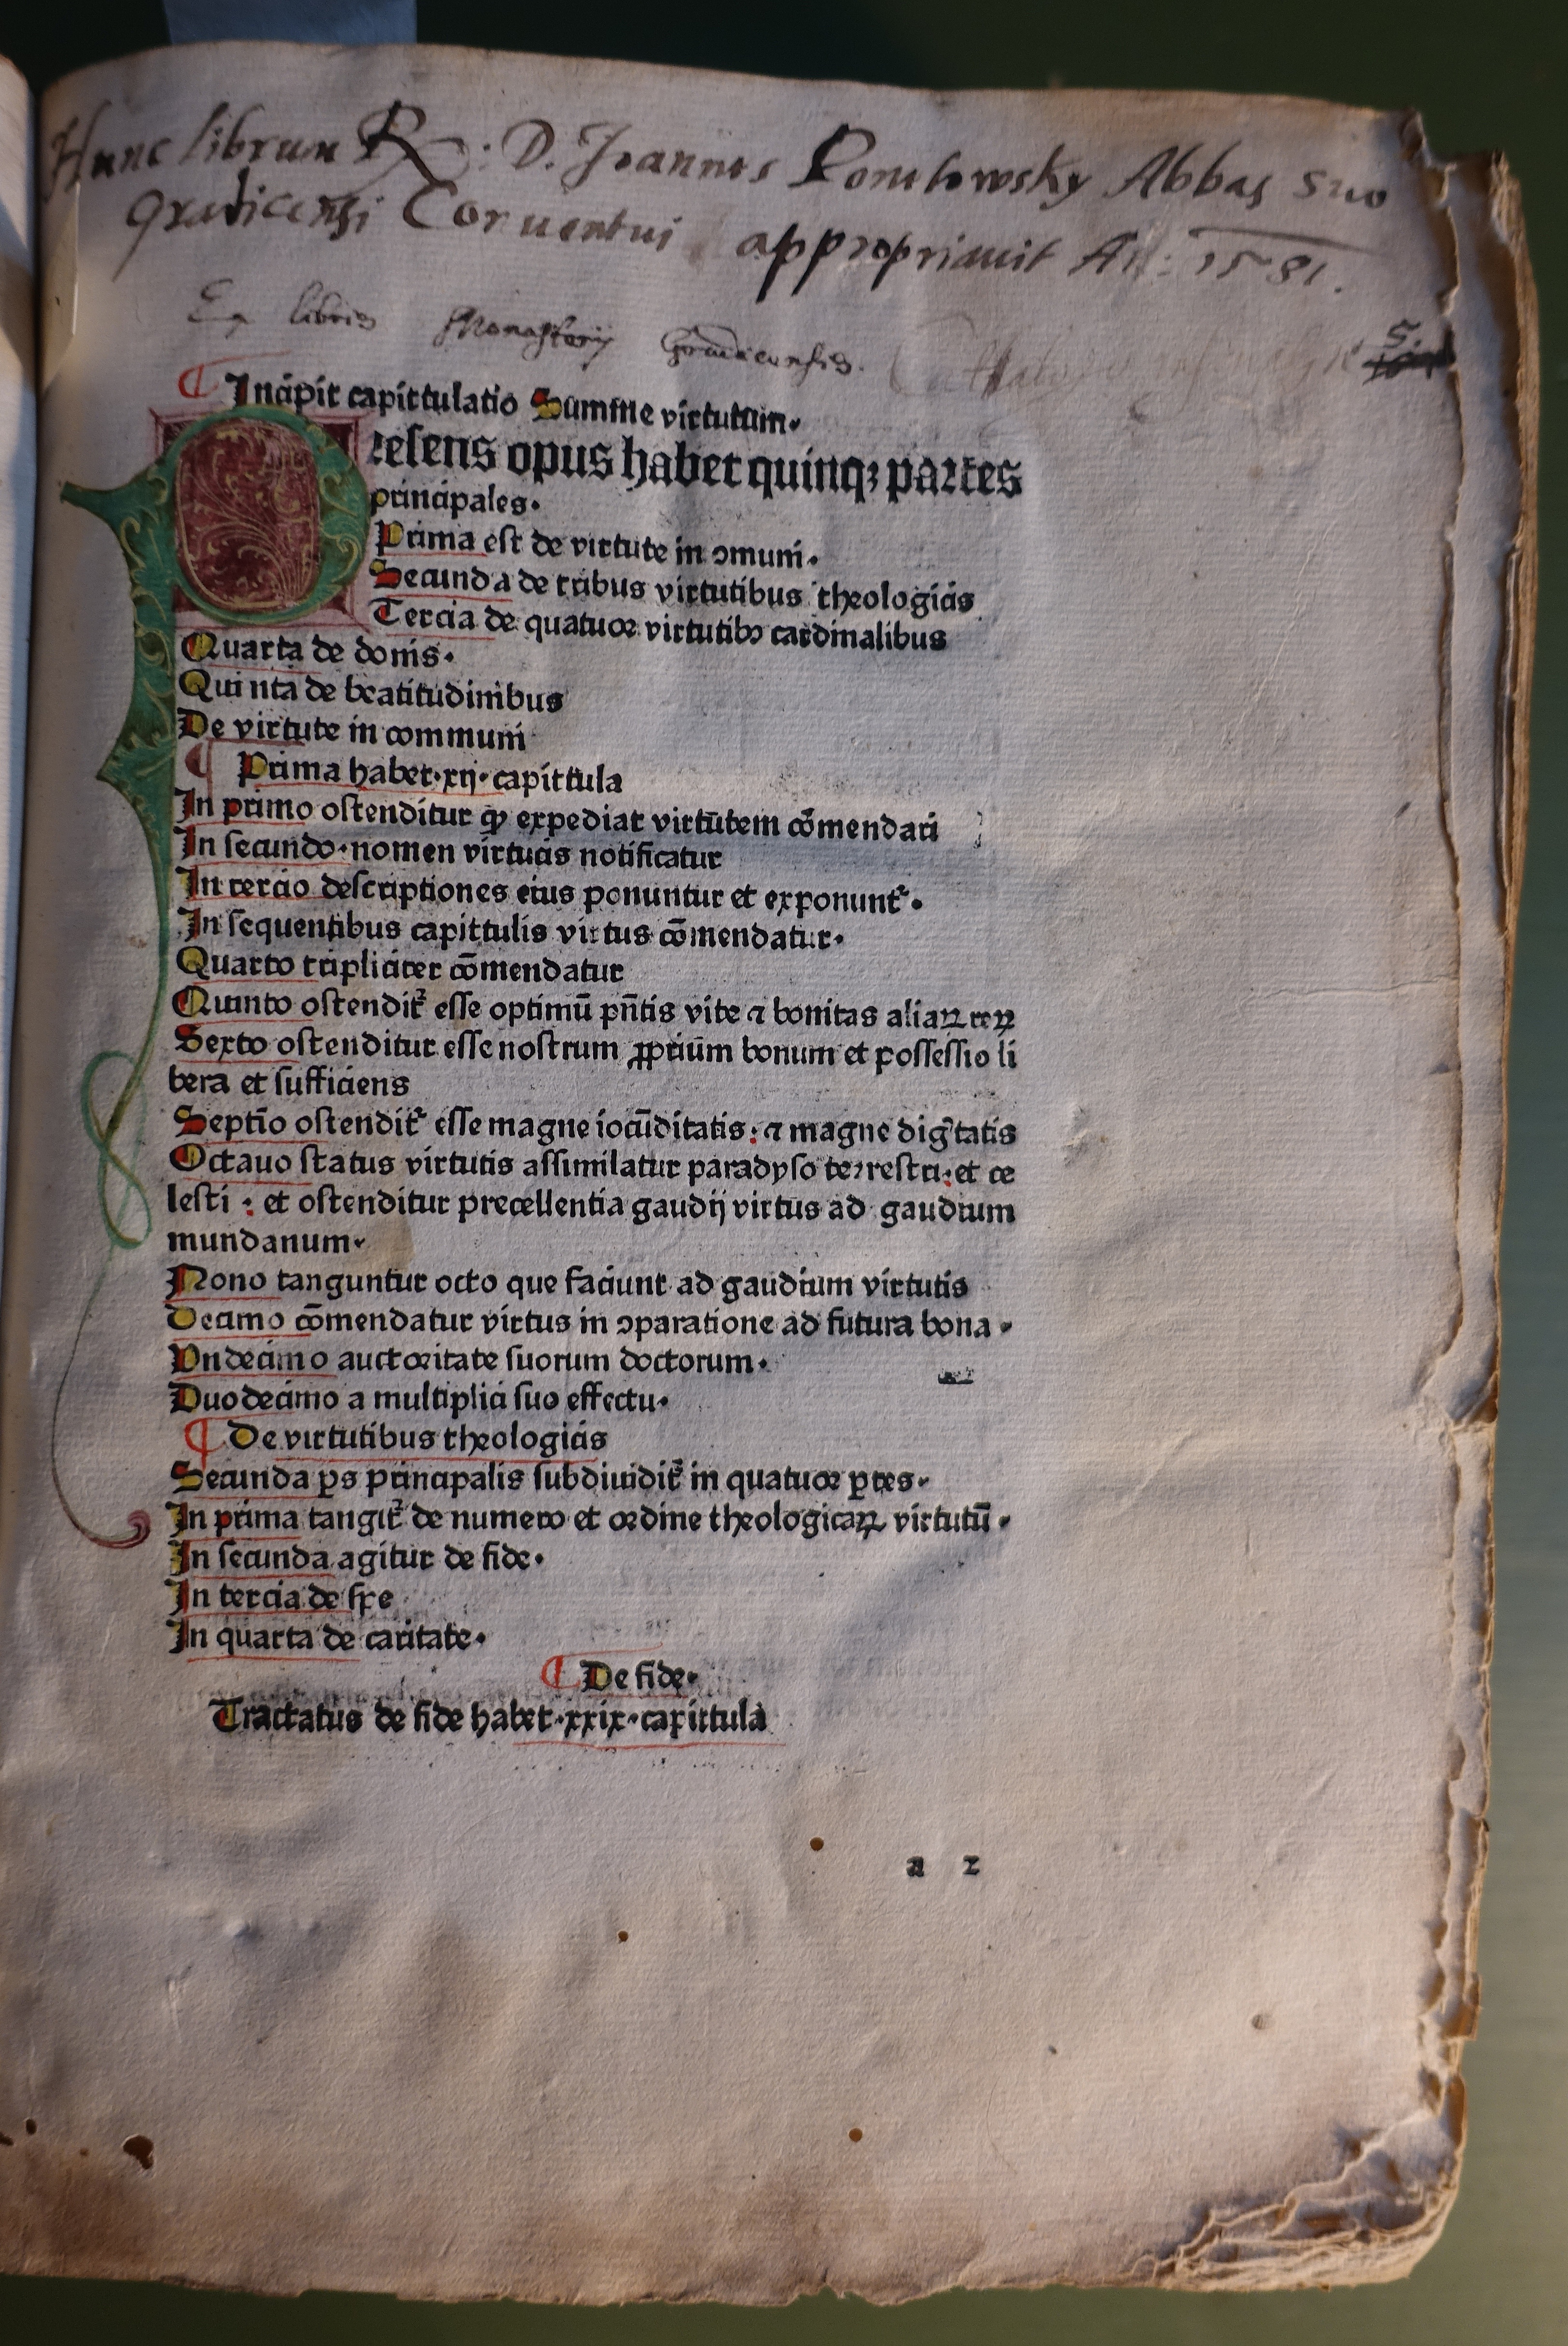 Hunc librum R: D. Joannes Ponetowsky Abbas suo
Gradicensi Conuentui appropriauit An: 1581.
Ex libris Monasterij Gradicensis.
5.
¶ Incipit capittulatio Summe virtutum.
Presens opus habet quinqꝫ partes
principales.
Prima est de virtute in ↄmuni.
Secunda de tribus virtutibus theologicis
Tercia de quatuor virtutibꝰ cardinalibus
Quarta de donis.
Quinta de beatitudinibus
De virtute in communi
¶ Prima habet.xij.capittula
In primo ostenditur ꝙ expediat virtutem cōmendari
In secundo.nomen virtutis notificatur
In tercio descriptiones eius ponuntur et exponunt᷑.
In sequentibus capittulis virtus cōmendatur.
Quarto tripliciter cōmendatur
Quinto ostendit᷑ esse optimū pn̄tis vite ⁊ bonitas aliaꝝ reꝝ
Sexto ostenditur esse nostrum ꝓprium bonum et possessio li
bera et sufficiens
Septīo ostendit᷑ esse magne iocūditatis: ⁊ magne diḡtatis
Octauo status virtutis assimilatur paradyso terrestri: et ce
lesti : et ostenditur precellentia gaudij virtus ad gaudium
mundanum.
Nono tanguntur octo que faciunt ad gaudium virtutis
Decimo cōmendatur virtus in ↄparatione ad futura bona.
Vndecimo auctoritate suorum doctorum.
Duodecimo a multiplici suo effectu.
¶ De virtutibus theologicis
Secunda ꝑs principalis subdiuidit᷑ in quatuor ꝑtes.
In prima tangit᷑ de numero et ordine theologicaꝝ virtutū.
In secunda agitur de fide.
In tercia de spe
In quarta de caritate.
¶ De fide.
Tractatus de fide habet.xxix.capittula
a 2